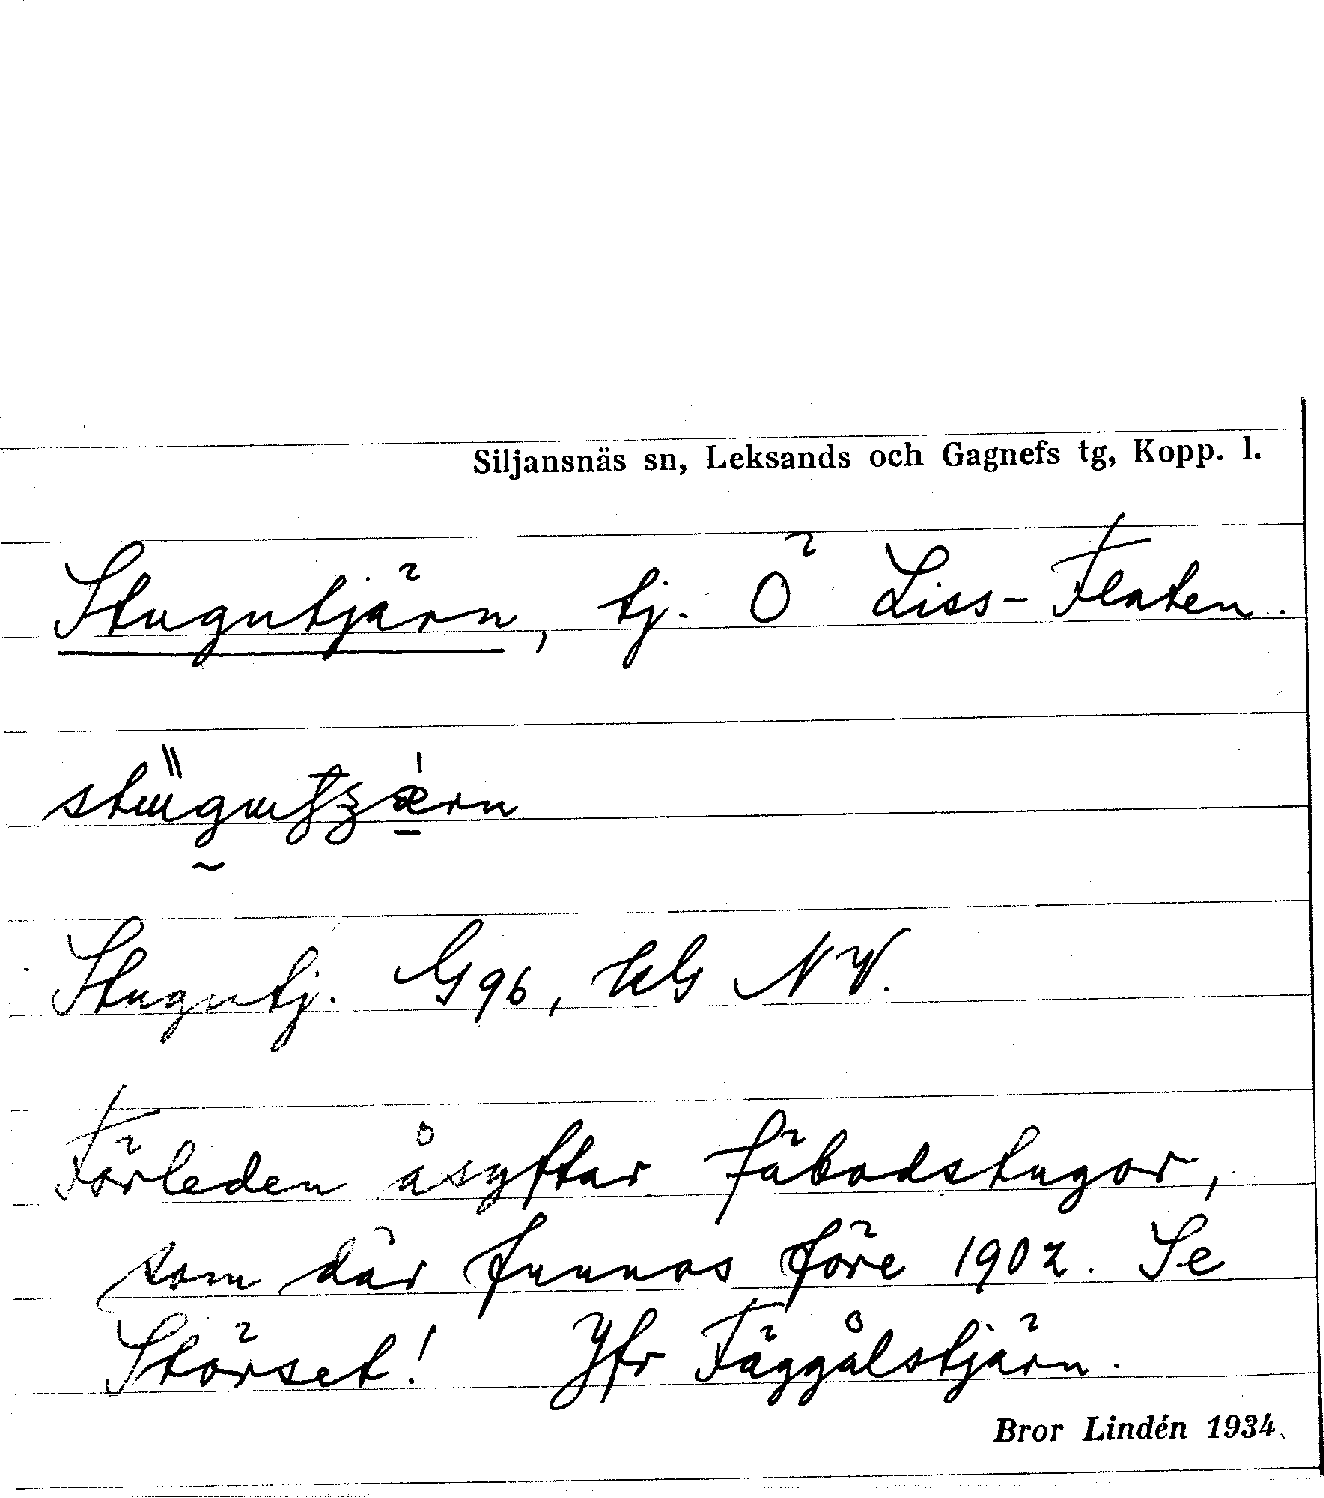 Siljansnäs sn, Leksands och Gagnefs tg, Kopp. l.
Stugutjärn, tj. Ö Liss-Flaten.
Stugutj. G96, UG NV.
Förleden åsyftar fäbodstugor,
som där funnos före 1902. Se
Störset! Jfr Fäggålstjärn.
Bror Lindén 1934.